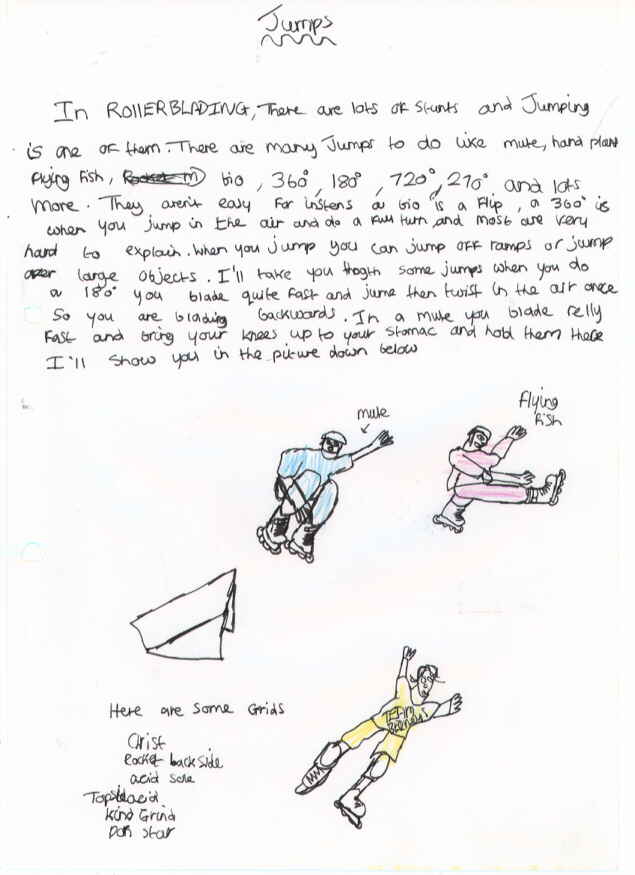 Jumps
In ROLLERBLADING, There are lots of stunts and Jumping
is one of them. There are many Jumps to do like mute, hand plant
flying fish, bio, 360°, 180°, 720°, 270° and lots
more. They aren't easy for instens a bio is a flip, a 360° is
when you jump in the air and do a full turn and most are very
hard to explain. when you jump you can jump off ramps or jump
over large objects. I'll take you thogth some jumps when you do
a 180° you blade quite fast and jump then twist in the air once
so you are blading backwards. In a mute you blade relly
fast and bring your knees up to your stomac and hold them there
I'll show you in the picture down below
mute
flying
fish
Here are some Grids
Christ
Rocket backside
acid sole
Topside acid
kind Grind
Pan star